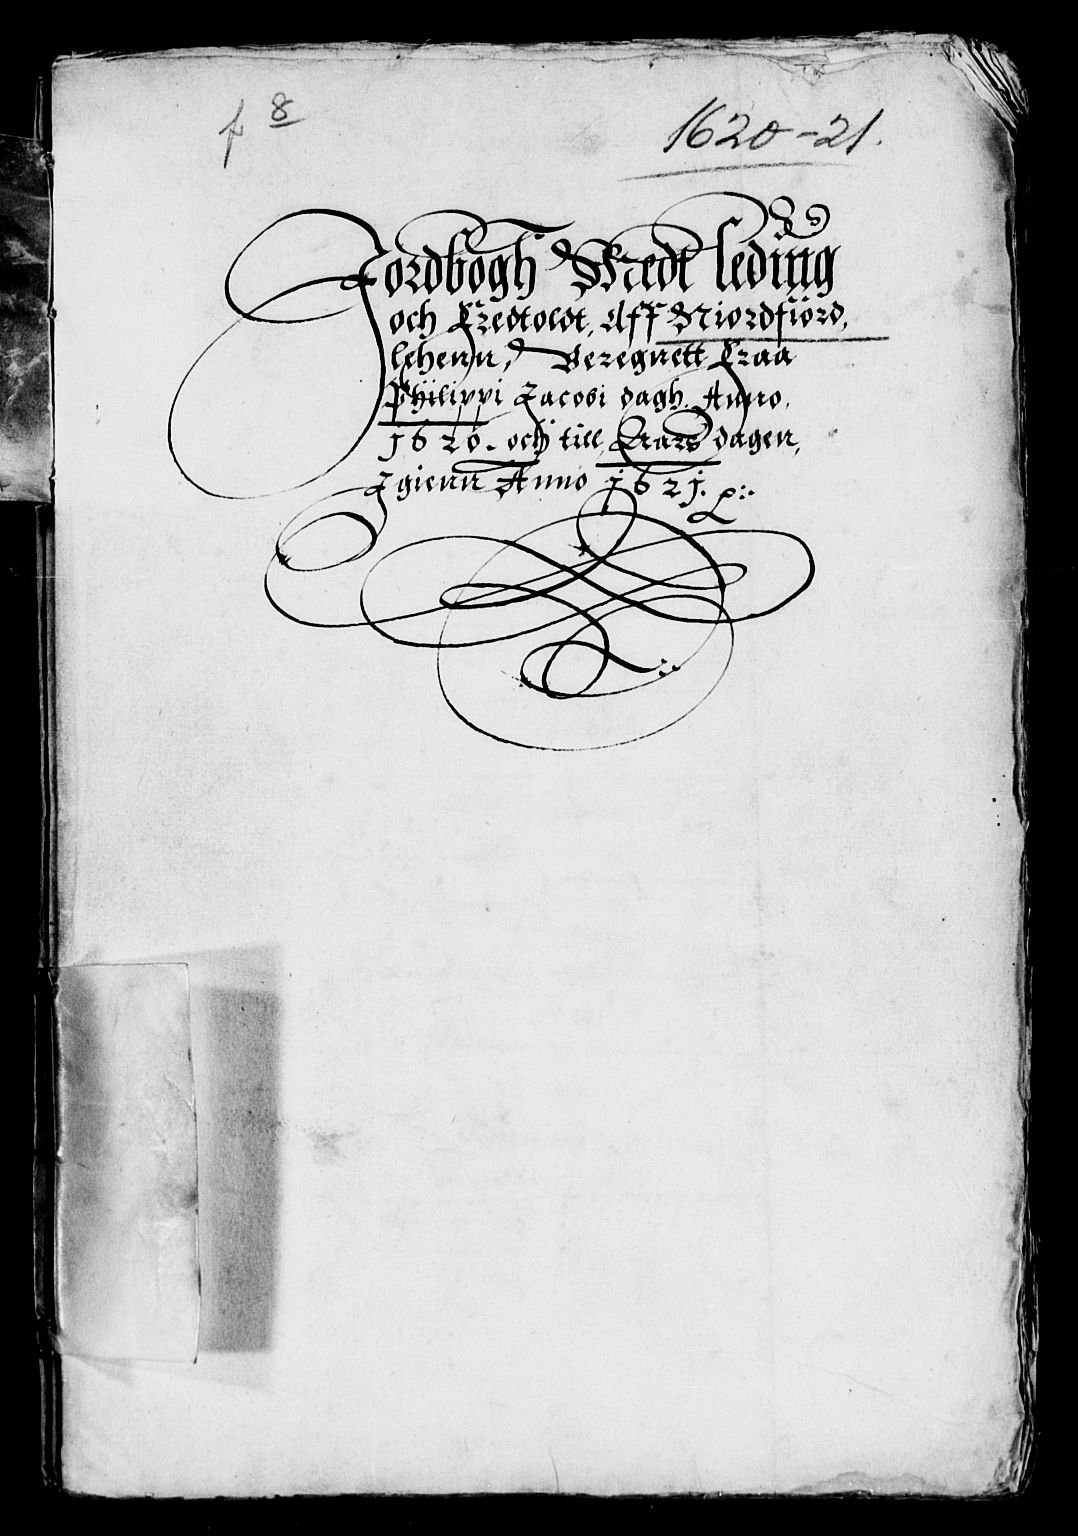 f 8
1620-21.
Jordbogh Medt leding
och Tredtoldt, Aff Niordfiord,
lehenn, Beregnett Fraa
Philippi Jacobi dagh. Anno.
1620. och till Aars dagen,
Igienn Anno 1621.